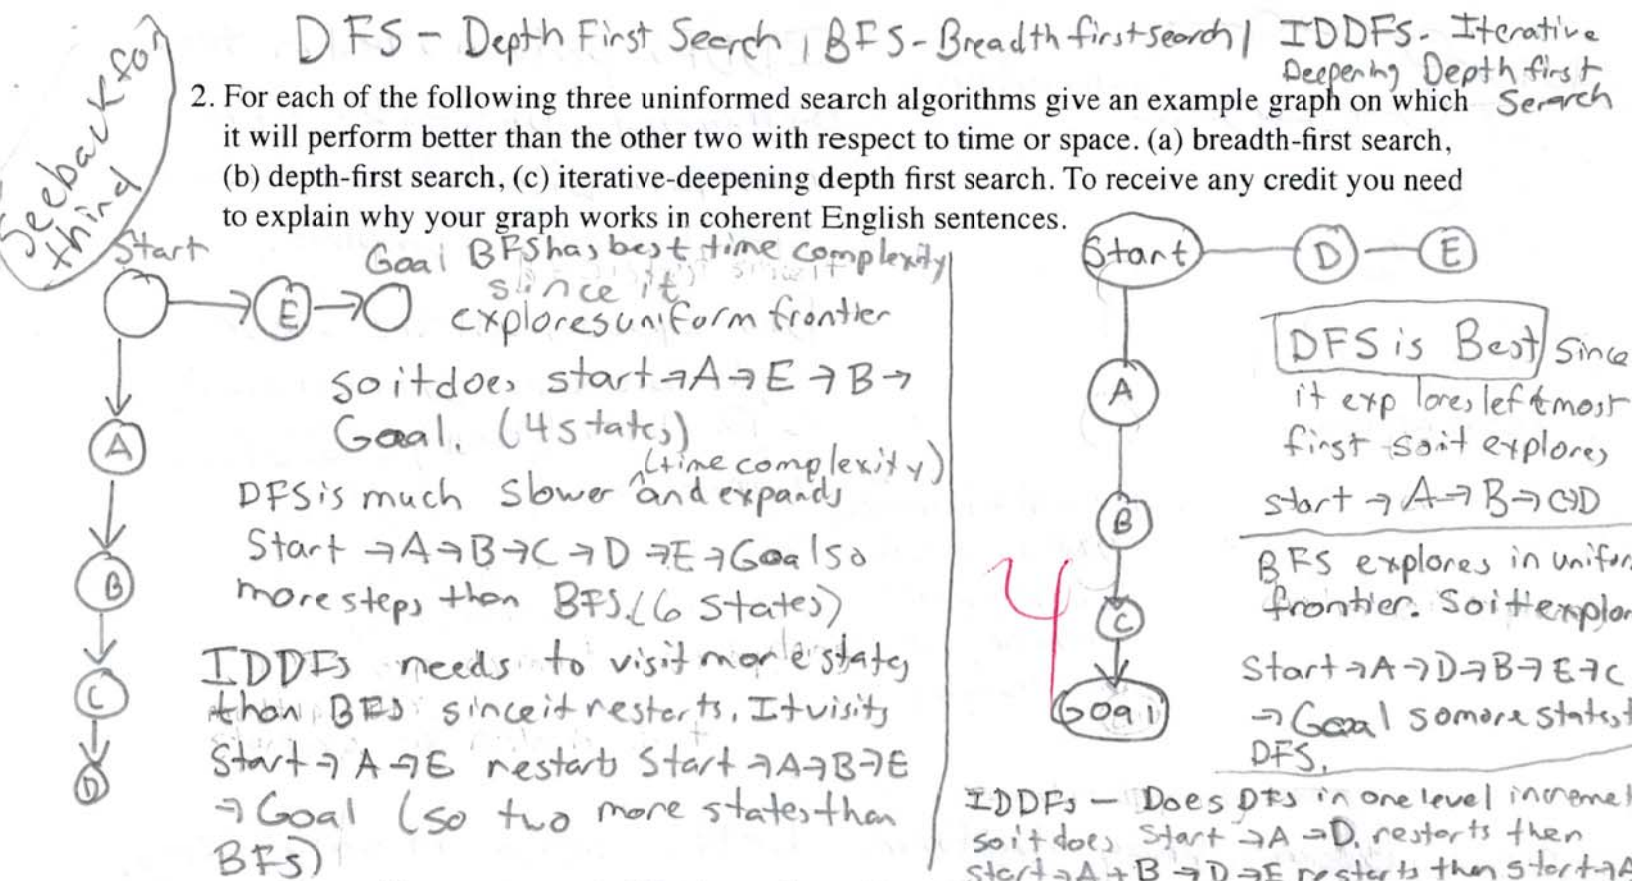 DFS - Depth First Search, BFS - Breadth first search | IDDFS - Iterative
Deepening Depth first
Serarch
See back for
third
2. For each of the following three uninformed search algorithms give an example graph on which
it will perform better than the other two with respect to time or space. (a) breadth-first search,
(b) depth-first search, (c) iterative-deepening depth first search. To receive any credit you need
to explain why your graph works in coherent English sentences.
Start
E
A
B
C
D
Goal BFS has best time complexity
since it
explores uniform frontier
so it does start → A → E → B →
Goal. (4 states)
(time complexity)
DFS is much slower and expands
Start → A → B → C → D → E → Goal so
more steps than BFS. (6 states)
IDDFs needs to visit more states
than BFS since it restarts. It visits
Start → A → E restarts Start → A → B → E
→ Goal (so two more states than
BFS)
Start D E
A
B
C
Goal
4
DFS is Best since
it explores leftmost
first so it explores
start → A → B → C → D
BFS explores in unifor
frontier. So it explor
Start → A → D → B → E → C
→ Goal so more states t
DFS.
IDDFs - Does DFS in one level incremet
so it does Start → A → D. restarts then
start → A → B → D → E restarts then start → A